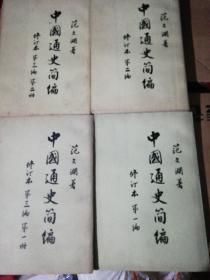 范文瀾著
中國通史简編
修订本 第三编 第二册
范文瀾著
中國通史简編
修订本 第二编
范文瀾著
中國通史简編
修订本 第三编 第一册
范文瀾著
中國通史简編
修订本 第一编